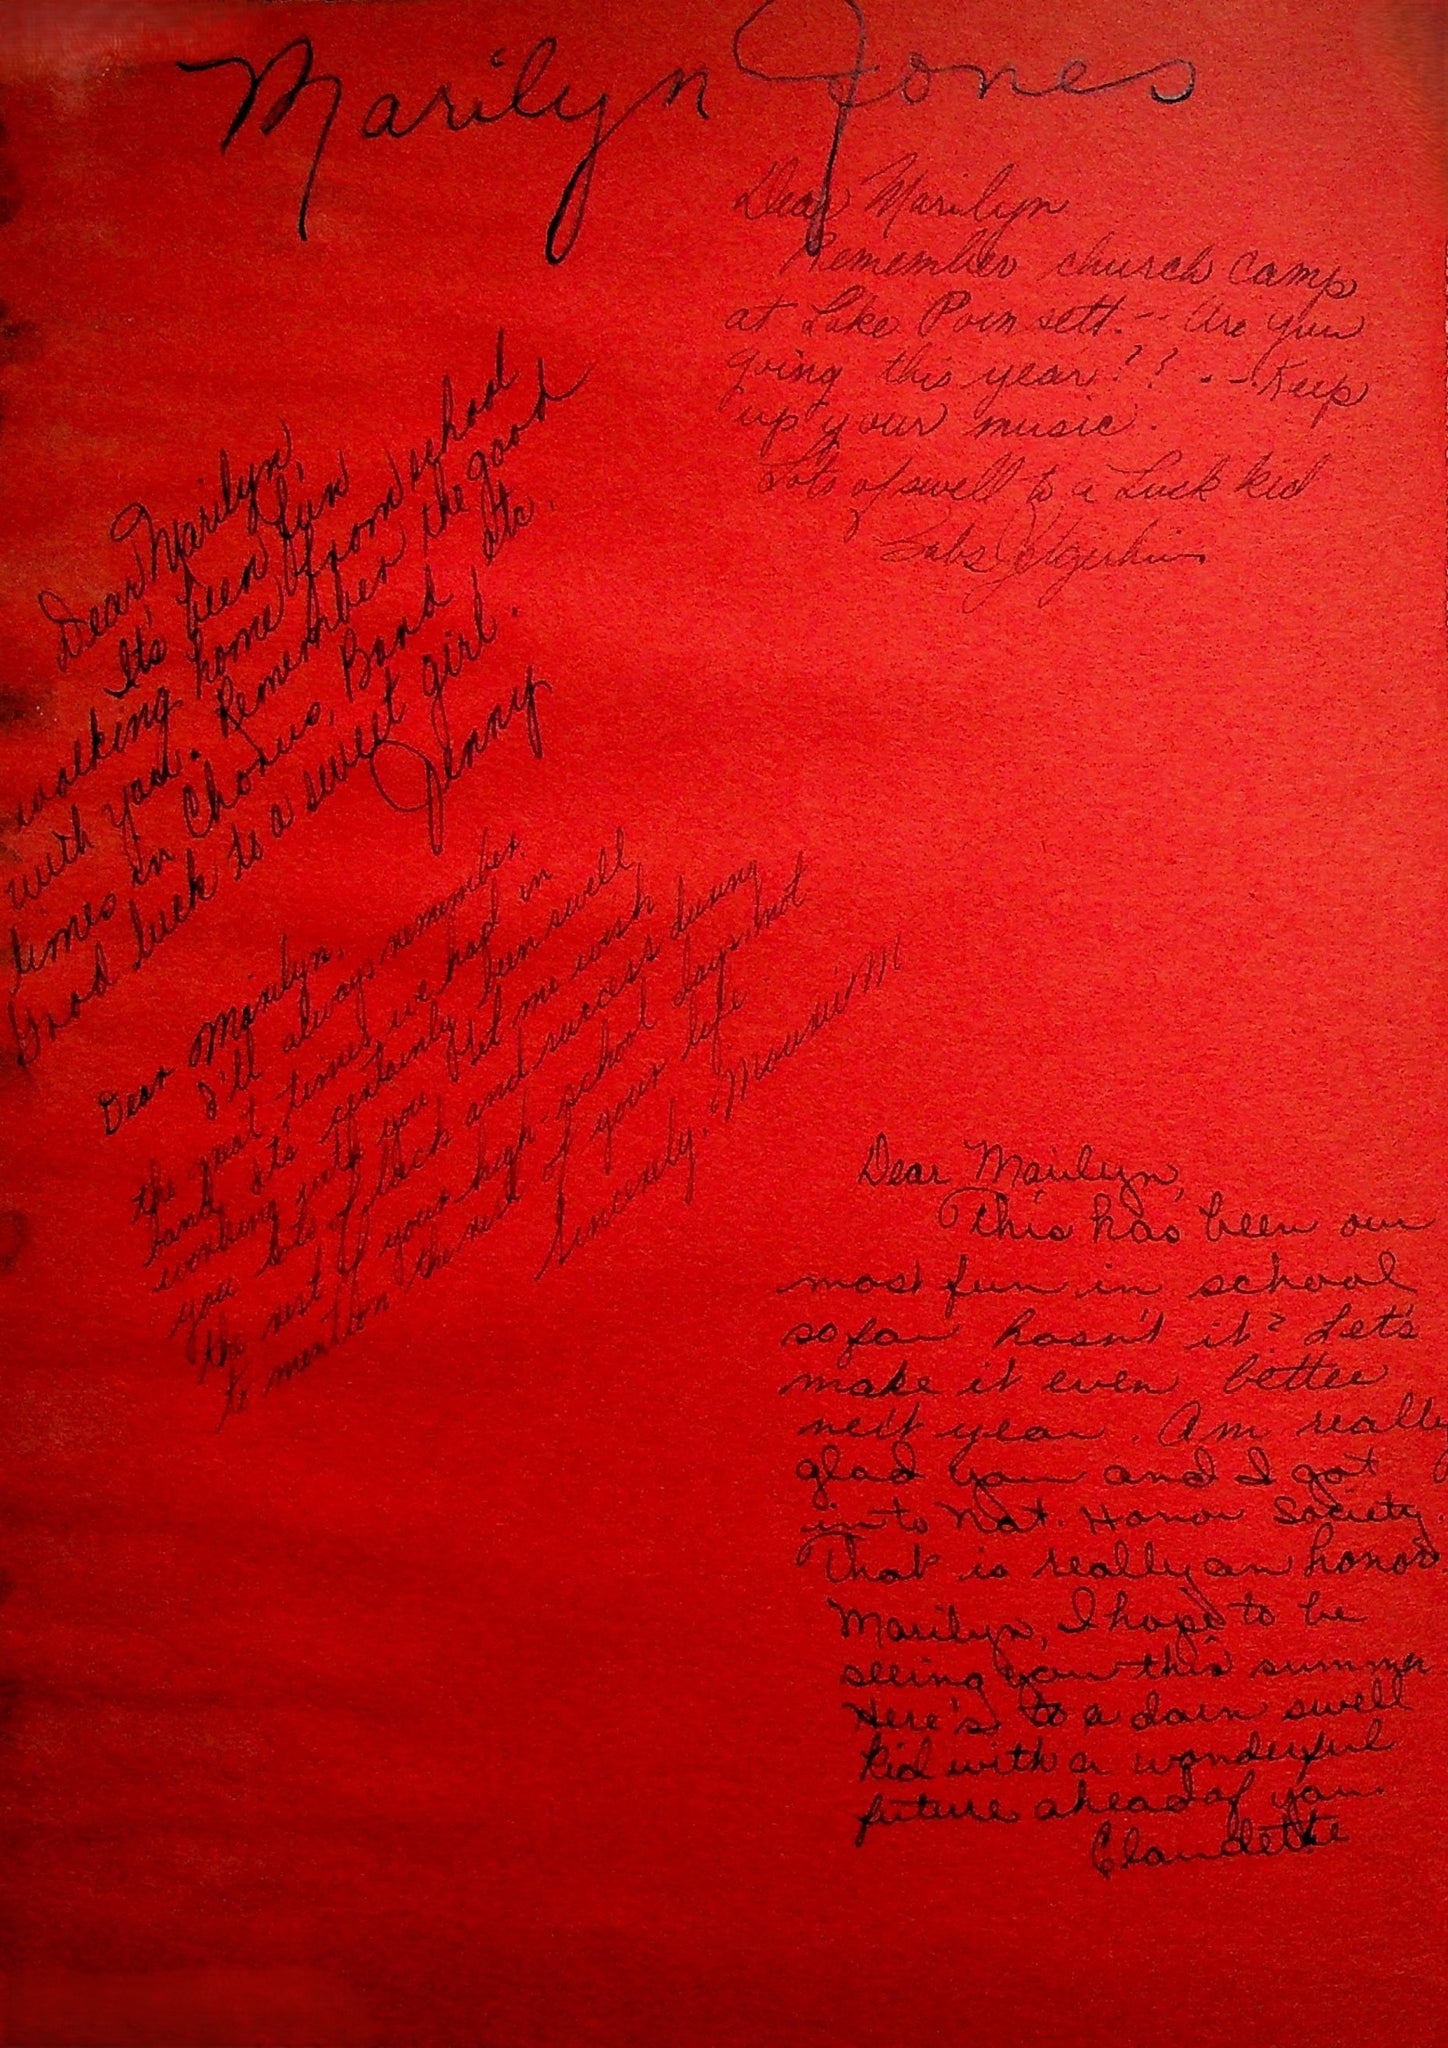 Marilyn Jones
Dear Marilyn
Remember church camp
at Lake Poinsett. -- Are you
going this year?? . -- Keep
up your music.
Lots of swell to a Luck kid
Dear Marilyn,
It's been fun
walking home from school
with you. Remember the good
times in Chorus, Band, etc.
Good luck to a sweet girl.
Jenny
Dear Marilyn,
I'll always remember
the great times we had in
band. It's certainly been swell
working with you. Let me wish
you lots of luck and success during
the rest of your high school days not
to mention the rest of your life
Sincerely, M
Dear Marilyn,
This has been our
most fun in school
so far hasn't it? Let's
make it even better
next year. Am really
glad you and I got
into Nat. Honor Society.
That is really an honor
Marilyn, I hope to be
seeing you this summer
Here's to a darn swell
kid with a wonderful
future ahead of you.
Claudette